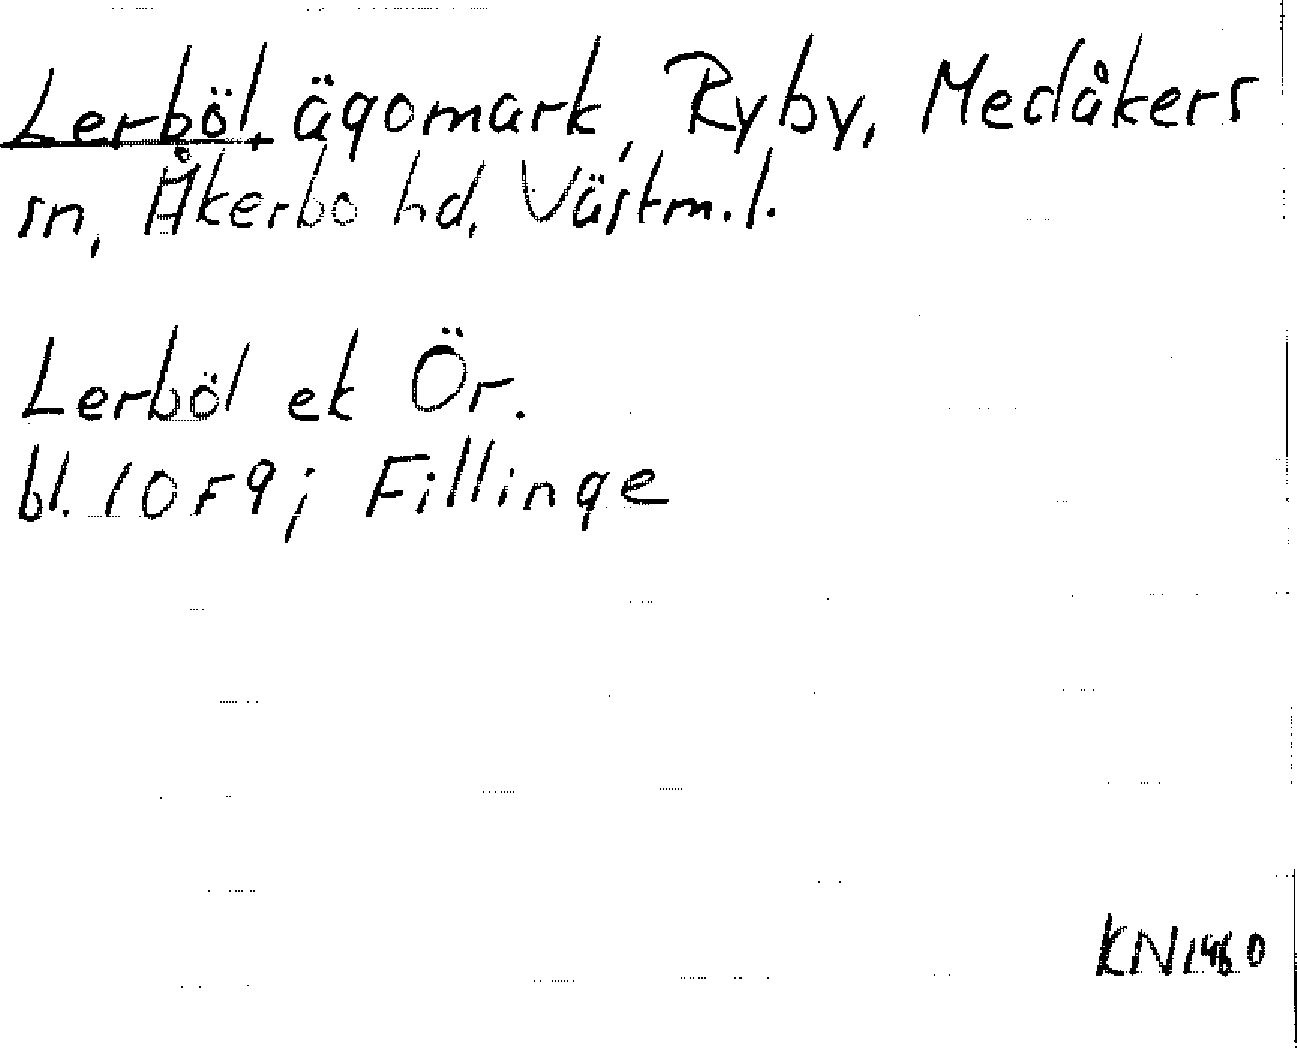 Lerböl, ägomark, Ryby, Medåkers
sn, Åkerbo hd, Västm.l.
Lerböl ek Ör.
bl. 10F9; Fillinge
KN1980